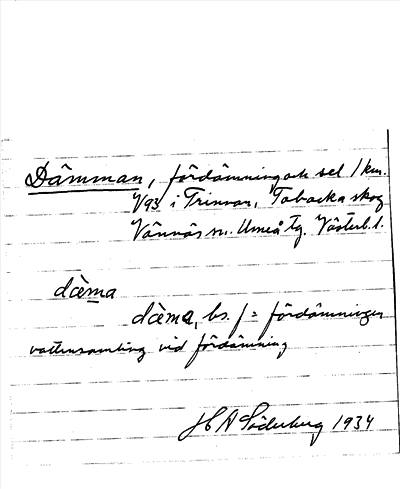 Dämman, fördämning och sel 1 km.
V93 i Trinnan, Tobacka skog
Vännäs sn. Umeå Tg. Västerb. l.
dæ̀ma
dæ̀ma, bs. f = fördämningen
vattensamling vid fördämning
J A Söderberg 1934